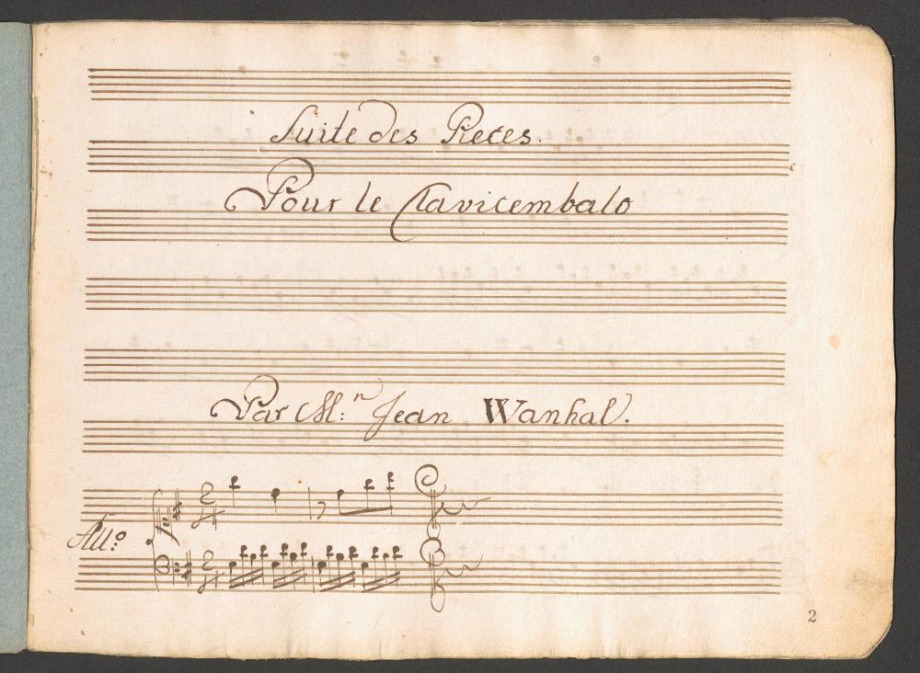 Suite des Pieces.
Pour le Clavicembalo
Par M:n Jean Wanhal.
All:o
2
4
2
4
2